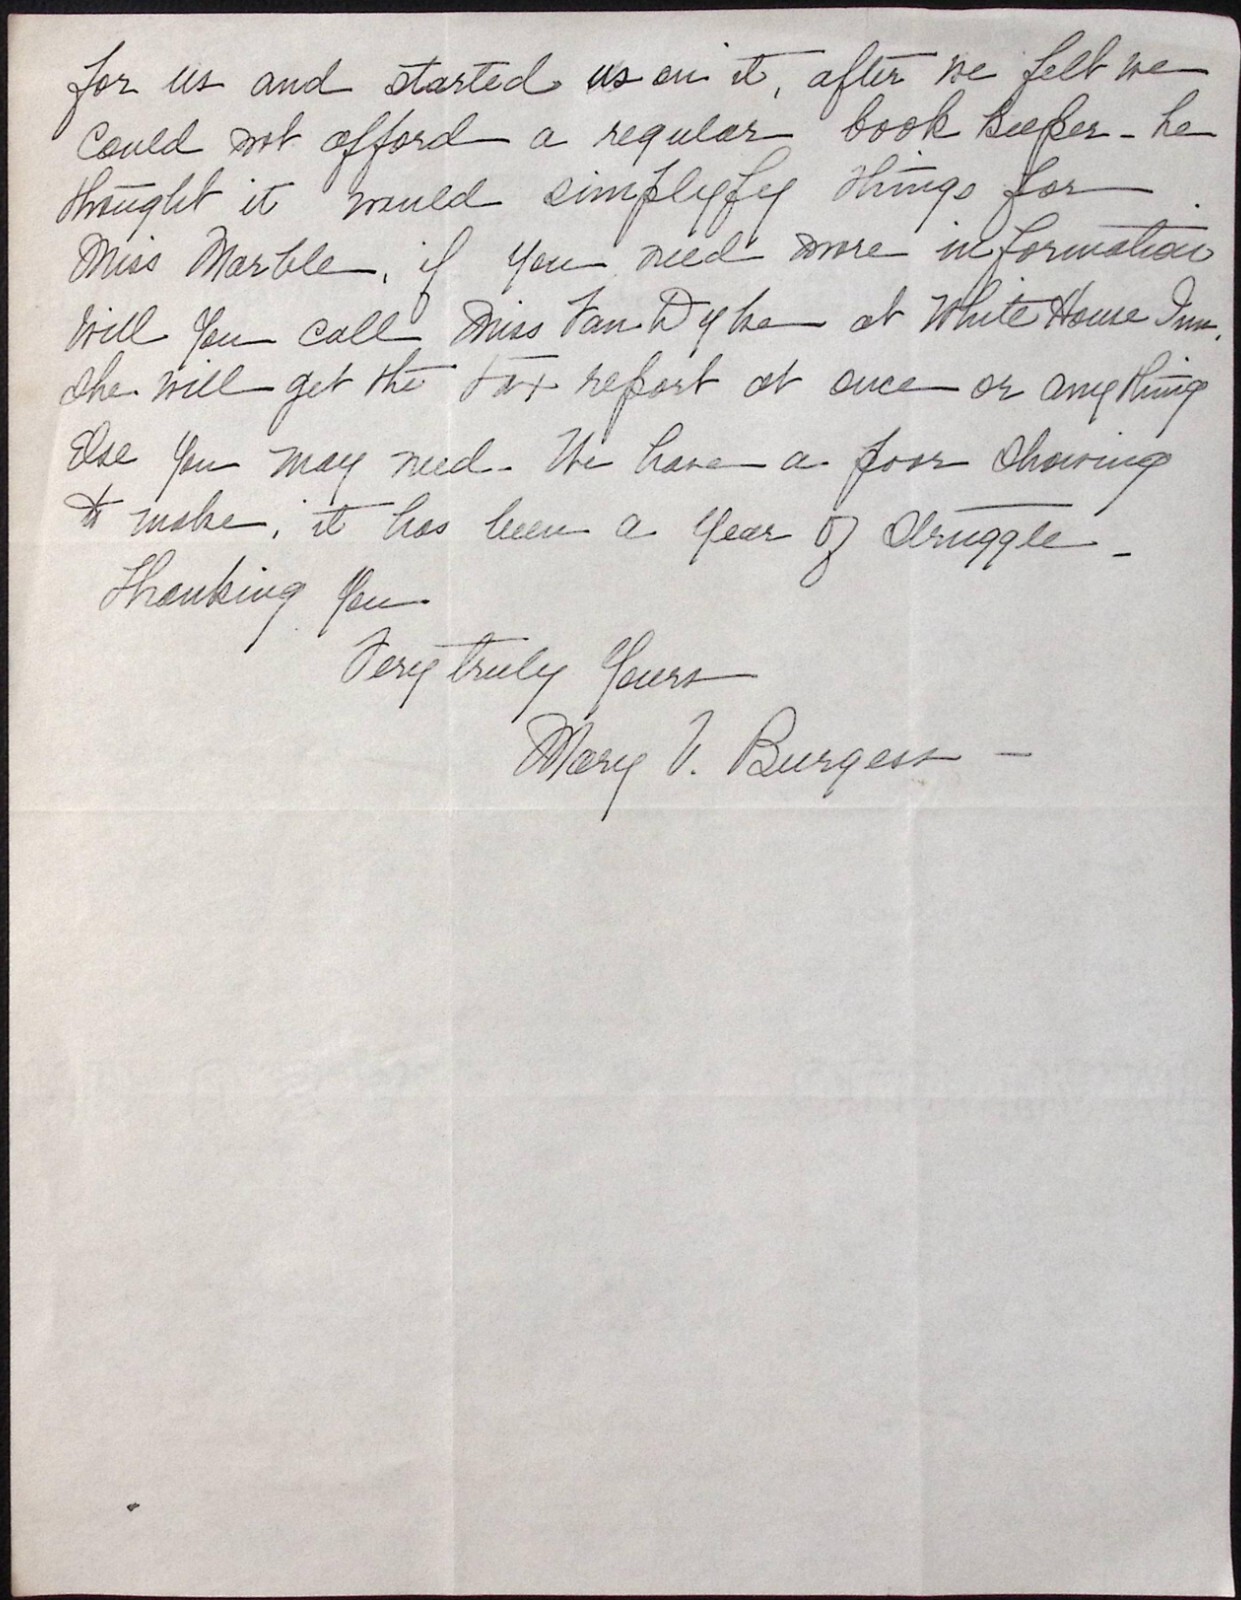 for us and started us on it, after we felt we
could not afford a regular book keeper - he
thought it would simplyfy things for
Miss Marble, if you need more information
will you call Miss Van Dyke at White House Inn.
she will get the tax report at once or anything
else you may need - We have a poor showing
to make, it has been a year of struggle -
Thanking you
Very truly yours
Mary V. Burgess -